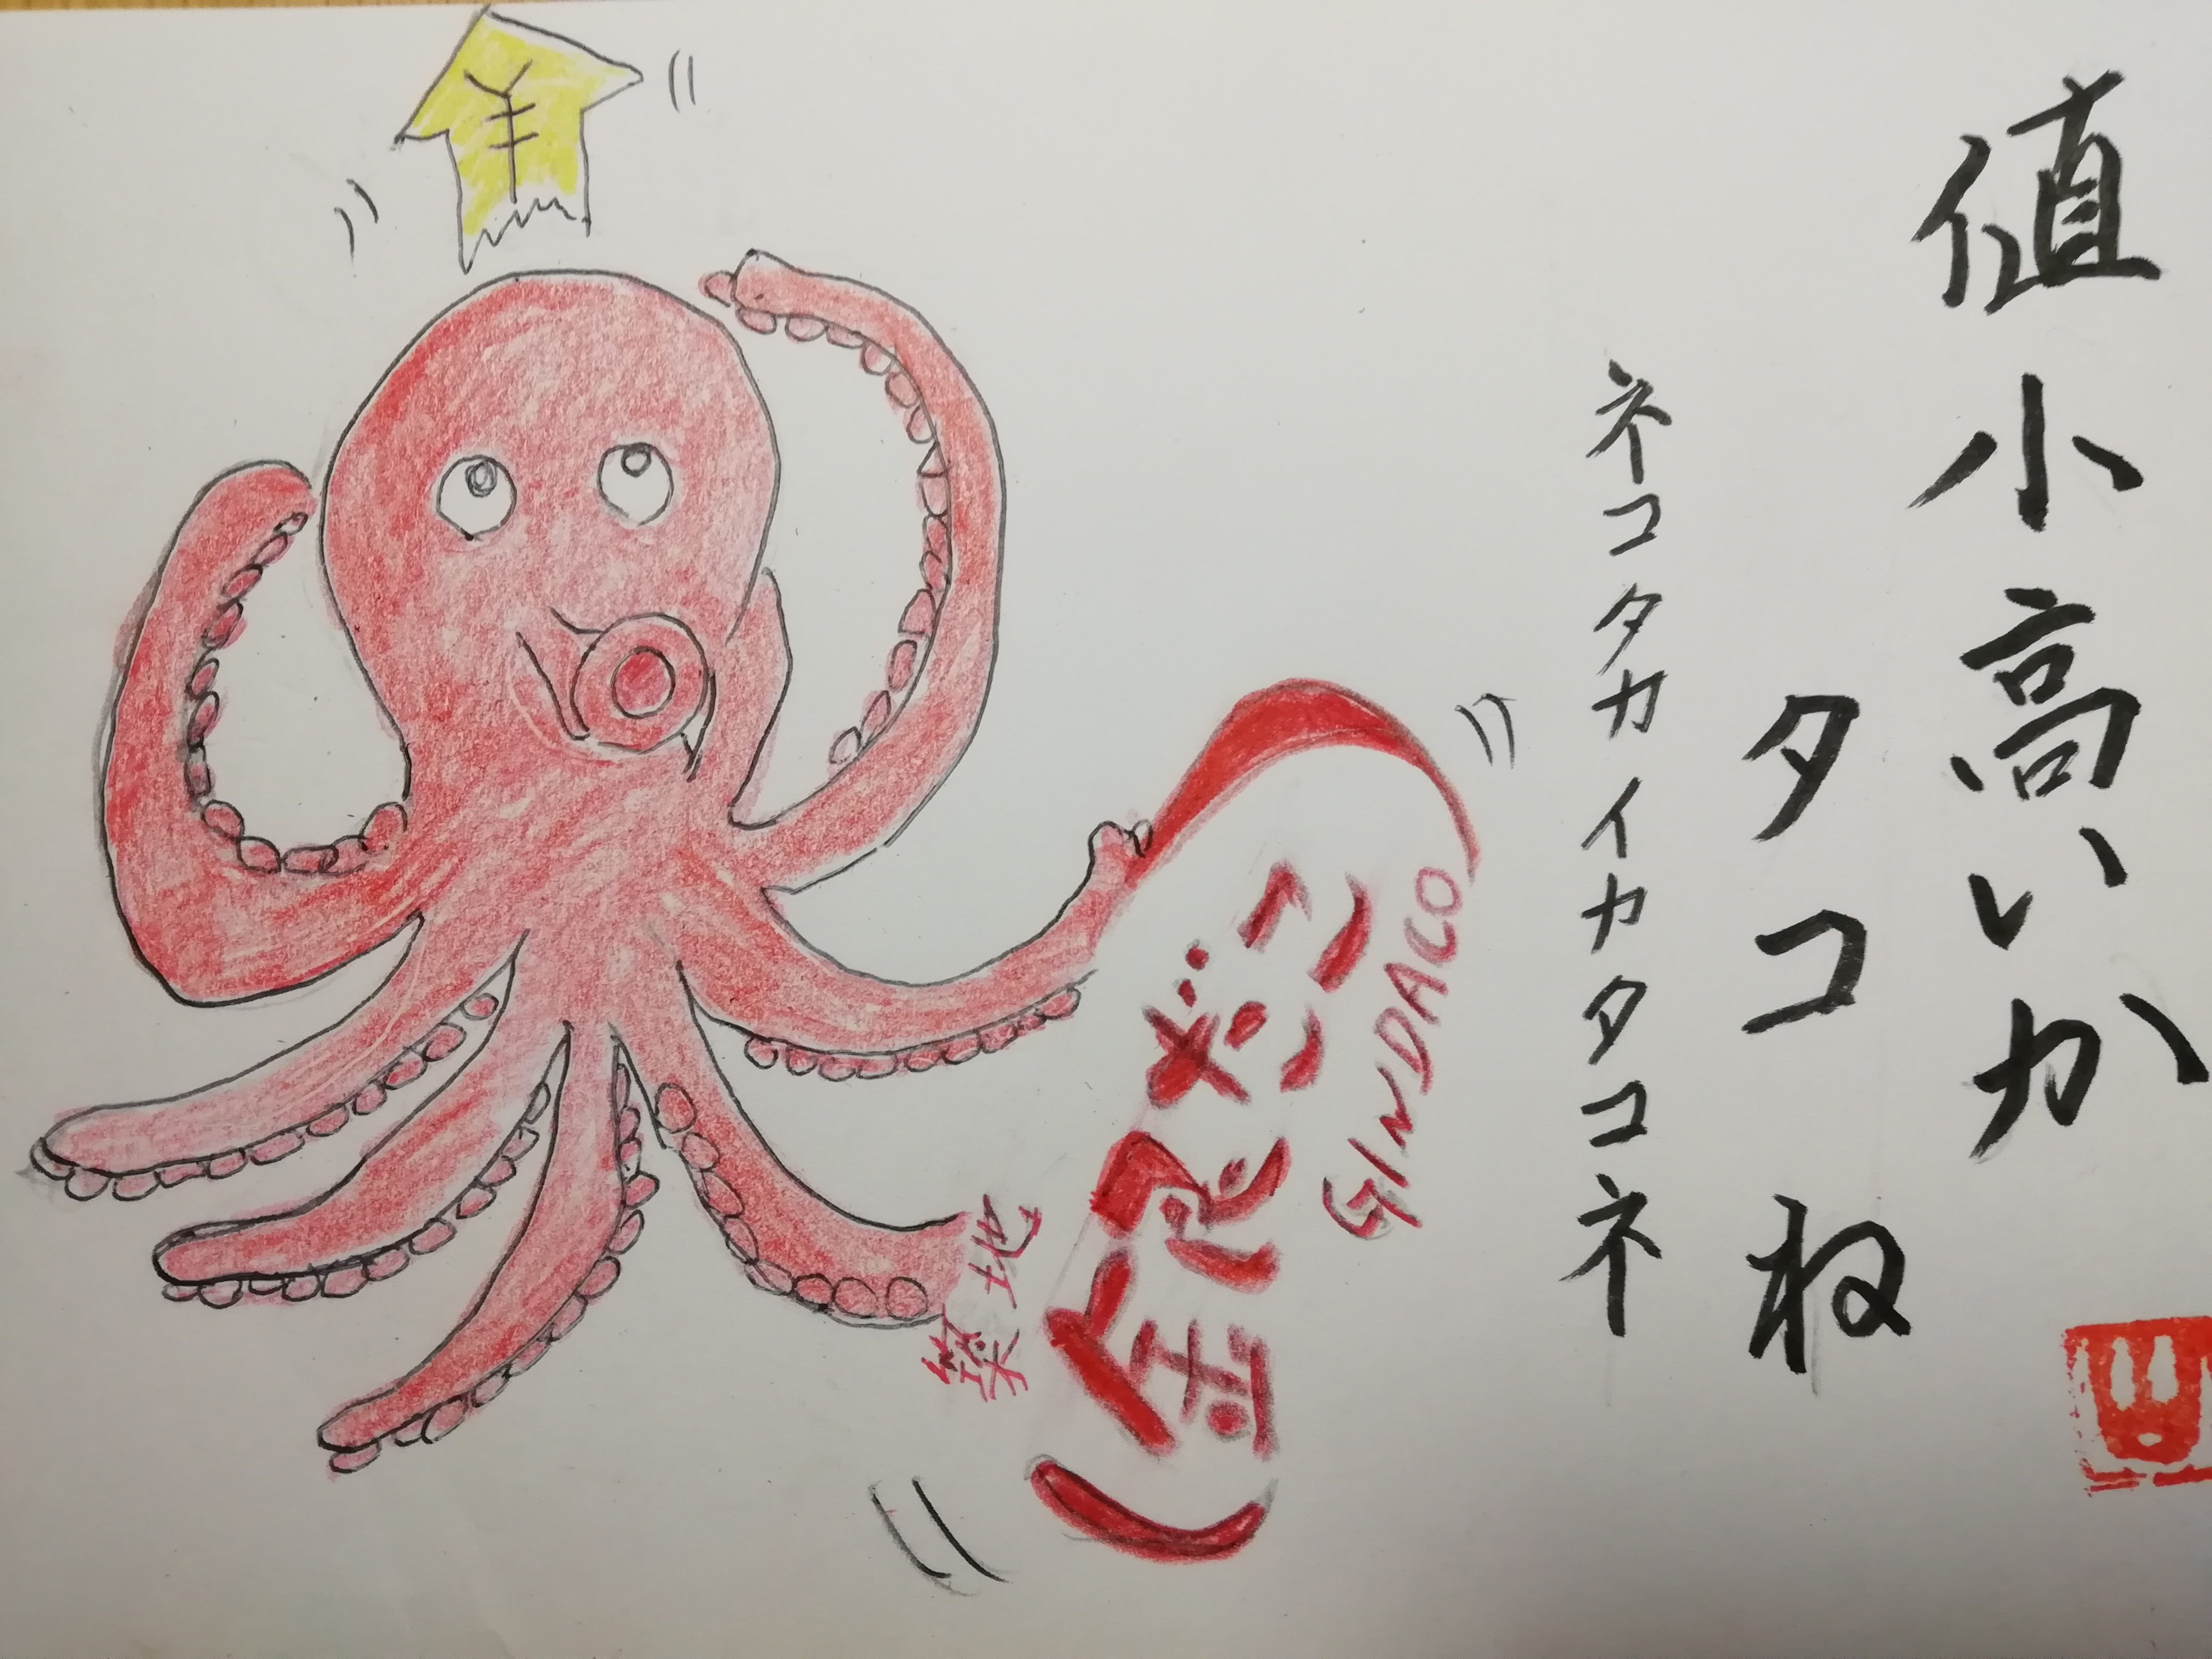 値小高いか
タコね
ネコタカイカタコネ
¥
築地
銀だこ
GINDACO